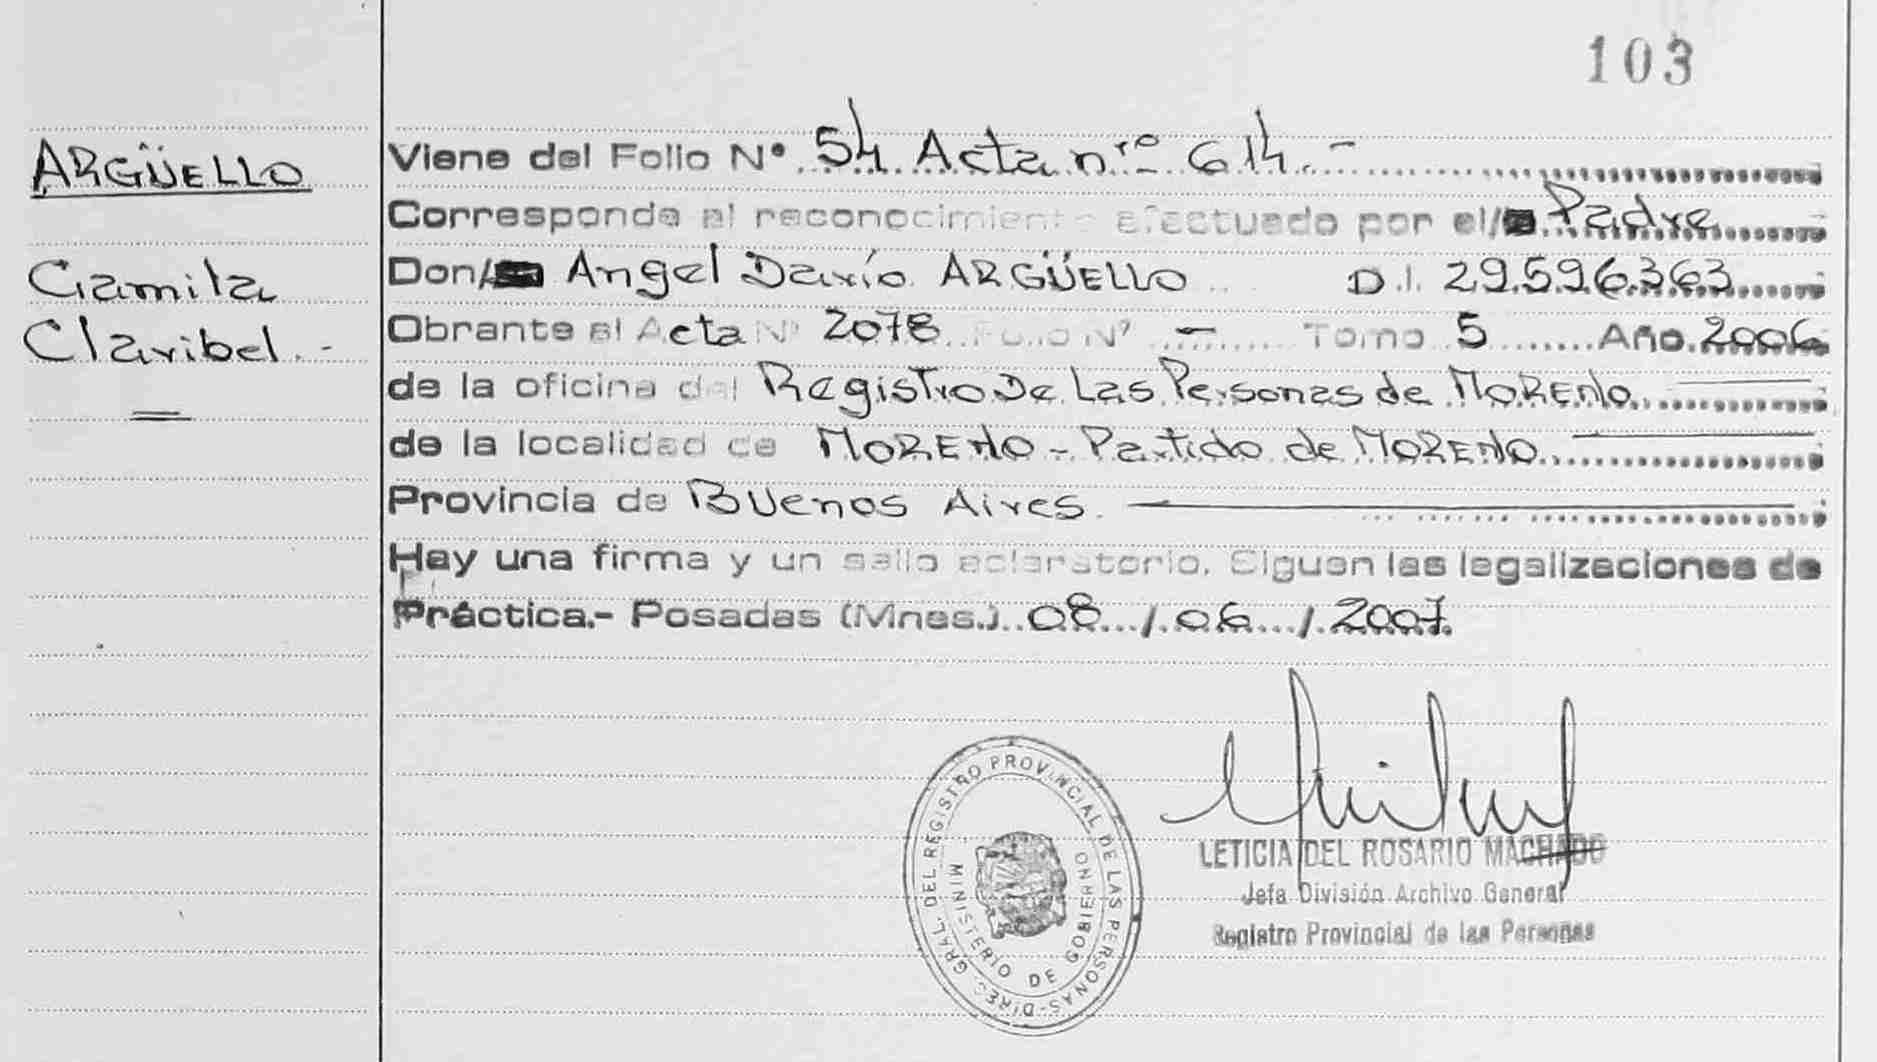 103
ARGÜELLO
Camila
Claribel.-
Viene del Folio Nº 54 Acta nrº 614.-
Corresponde al reconocimiento efectuado por el/ Padre
Don/ Angel Darío ARGÜELLO D.I. 29.596.363
Obrante al Acta Nº 2078 Folio Nº - Tomo 5 Año 2006
de la oficina del Registro De Las Personas de MORENO
de la localidad de MORENO - Partido de MORENO
Provincia de Buenos Aires.
Hay una firma y un sello aclaratorio. Siguen las legalizaciones de
Práctica.- Posadas (Mnes.) 08 / 06 / 2007.
LETICIA DEL ROSARIO MACHADO
Jefa División Archivo General
Registro Provincial de las Personas
DIREC. GRAL. DEL REGISTRO PROVINCIAL DE LAS PERSONAS
MINISTERIO DE GOBIERNO